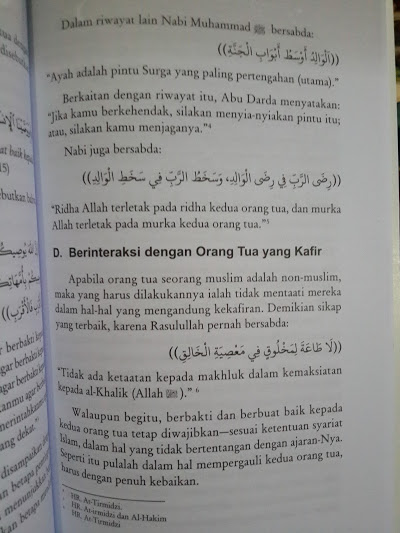 Dalam riwayat lain Nabi Muhammad ﷺ bersabda:
((اَلْوَالِدُ أَوْسَطُ أَبْوَابِ الْجَنَّةِ))
“Ayah adalah pintu Surga yang paling pertengahan (utama).”
Berkaitan dengan riwayat itu, Abu Darda menyatakan:
“Jika kamu berkehendak, silakan menyia-nyiakan pintu itu;
atau, silakan kamu menjaganya.”⁴
Nabi juga bersabda:
((رِضَى الرَّبِّ فِي رِضَى الْوَالِدِ، وَسَخَطُ الرَّبِّ فِي سَخَطِ الْوَالِدِ))
“Ridha Allah terletak pada ridha kedua orang tua, dan murka
Allah terletak pada murka kedua orang tua.”⁵
D. Berinteraksi dengan Orang Tua yang Kafir
Apabila orang tua seorang muslim adalah non-muslim,
maka yang harus dilakukannya ialah tidak mentaati mereka
dalam hal-hal yang mengandung kekafiran. Demikian sikap
yang terbaik, karena Rasulullah pernah bersabda:
((لَا طَاعَةَ لِمَخْلُوقٍ فِي مَعْصِيَةِ الْخَالِقِ))
“Tidak ada ketaatan kepada makhluk dalam kemaksiatan
kepada al-Khalik (Allah ﷻ).” ⁶
Walaupun begitu, berbakti dan berbuat baik kepada
kedua orang tua tetap diwajibkan—sesuai ketentuan syariat
Islam, dalam hal yang tidak bertentangan dengan ajaran-Nya.
Seperti itu pulalah dalam hal mempergauli kedua orang tua,
harus dengan penuh kebaikan.
HR. At-Tirmidzi.
HR. At-irmidzi dan Al-Hakim
HR. At-Tirmidzi